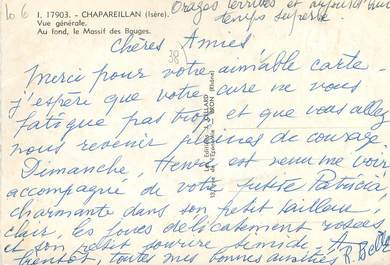 10 6
I. 17903. - CHAPAREILLAN (Isère).
Vue générale.
Au fond, le Massif des Bauges.
Orages terribles et aujourd'hui
temps superbe
38
Chères Amies
Merci pour votre aimable carte -
j'espère que votre cure ne vous
fatigue pas trop et que vous allez
nous revenir pleines de courage.
Dimanche, Henri est venu me voir
accompagné de votre petite Patricia
charmante dans son petit tailleur,
clair, les joues délicatement rosées,
et son petit sourire timide. A
bientôt, toutes mes bonnes amitiés
BRON (Rhône)